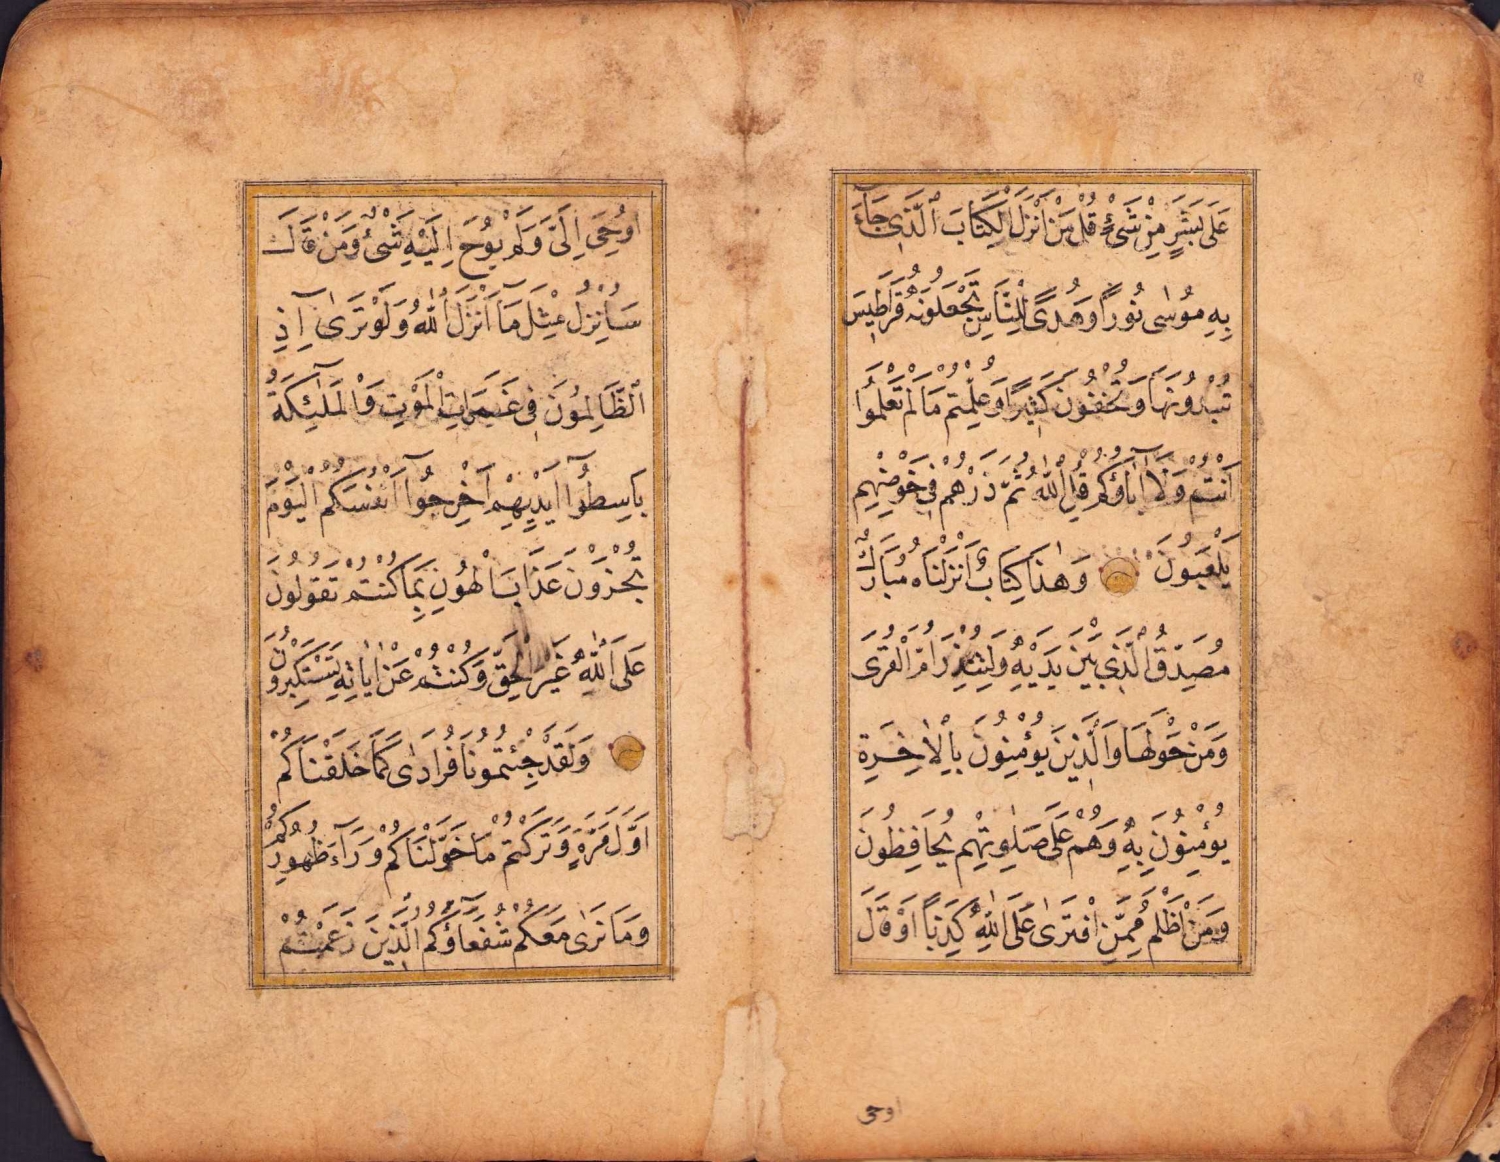 عَلَى بَشَرٍ مِنْ شَیْءٍ قُلْ مَنْ اَنْزَلَ الْكِتَابَ الَّذِی جَآءَ
بِهِ مُوسٰى نُورًا وَهُدًى لِلنَّاسِ تَجْعَلُونَهُ قَرَاطِیسَ
تُبْدُونَهَا وَتُخْفُونَ كَثِیرًا وَعُلِّمْتُمْ مَا لَمْ تَعْلَمُوا
اَنْتُمْ وَلَآ اٰبَاؤُكُمْ قُلِ اللّٰهُ ثُمَّ ذَرْهُمْ فِی خَوْضِهِمْ
یَلْعَبُونَ وَهٰذَا كِتَابٌ اَنْزَلْنَاهُ مُبَارَكٌ
مُصَدِّقُ الَّذِی بَیْنَ یَدَیْهِ وَلِتُنْذِرَ اُمَّ الْقُرٰى
وَمَنْ حَوْلَهَا وَالَّذِینَ یُؤْمِنُونَ بِالْاٰخِرَةِ
یُؤْمِنُونَ بِهِ وَهُمْ عَلٰى صَلٰوتِهِمْ یُحَافِظُونَ
وَمَنْ اَظْلَمُ مِمَّنِ افْتَرٰى عَلَى اللّٰهِ كَذِبًا اَوْ قَالَ
اوحی
اُوحِیَ اِلَیَّ وَلَمْ یُوحَ اِلَیْهِ شَیْءٌ وَمَنْ قَالَ
سَاُنْزِلُ مِثْلَ مَآ اَنْزَلَ اللّٰهُ وَلَوْ تَرٰىٓ اِذِ
الظَّالِمُونَ فِی غَمَرَاتِ الْمَوْتِ وَالْمَلٰٓئِكَةُ
بَاسِطُوٓا اَیْدِیهِمْ اَخْرِجُوٓا اَنْفُسَكُمْ الْیَوْمَ
تُجْزَوْنَ عَذَابَ الْهُونِ بِمَا كُنْتُمْ تَقُولُونَ
عَلَى اللّٰهِ غَیْرَ الْحَقِّ وَكُنْتُمْ عَنْ اٰیَاتِهِ تَسْتَكْبِرُونَ
وَلَقَدْ جِئْتُمُونَا فُرَادٰى كَمَا خَلَقْنَاكُمْ
اَوَّلَ مَرَّةٍ وَتَرَكْتُمْ مَا خَوَّلْنَاكُمْ وَرَآءَ ظُهُورِكُمْ
وَمَا نَرٰى مَعَكُمْ شُفَعَآؤَكُمُ الَّذِینَ زَعَمْتُمْ